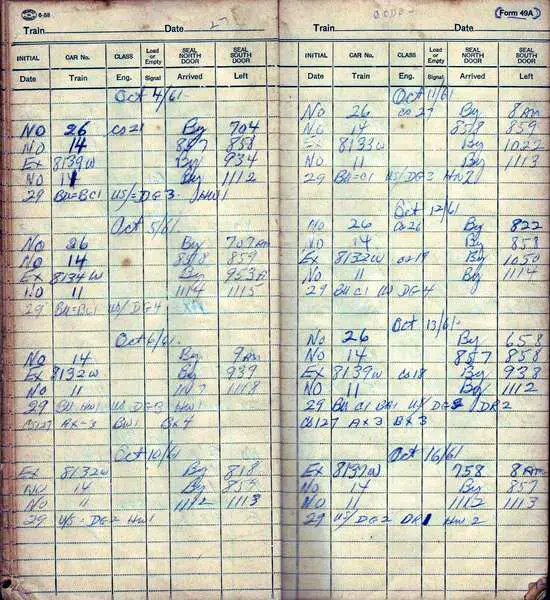 6-58
Train Date 27
INITIAL CAR No. CLASS Load or Empty SEAL NORTH DOOR SEAL SOUTH DOOR
Date Train Eng. Signal Arrived Left
Oct 4/61
NO 26 CS21 By 704
NO 14 857 858
Ex 8139W By 934
NO 11 By 1112
29 BU=BC1 US/=DG3 HW1
Oct 5/61
NO 26 By 707AM
NO 14 858 859
Ex 8134W By 953A
NO 11 1114 1115
29 BU=BC1 US/ DG4
Oct 6/61
NO 14 By 9AM
Ex 8132W By 939
NO 11 1117 1118
29 BU HW1 US DG3 HW1
CS127 AX-3 BW1 BX4
Oct 10/61
Ex 8132W By 818
NO 14 By 859
NO 11 1112 1113
29 US- DG2 HW1
Form 49A
Train Date
INITIAL CAR No. CLASS Load or Empty SEAL NORTH DOOR SEAL SOUTH DOOR
Date Train Eng. Signal Arrived Left
Oct 11/61
NO 26 CS27 By 8AM
NO 14 858 859
Ex 8133W By 1022
NO 11 By 1113
29 US/DG3 HW2
Oct 12/61
NO 26 CS26 By 822
NO 14 By 858
Ex 8132W CS18 By 1050
NO 11 By 1114
29 BU C1 US DG4
Oct 13/61
NO 26 By 658
NO 14 857 858
Ex 8139W CS18 By 938
NO 11 By 1112
29 BU C1 BR1 US/ DG2 DR2
CS127 AX3 BX3
Oct 16/61
Ex 8137W 758 8AM
NO 14 By 857
NO 11 1112 1113
29 US/ DG2 DR1 HW2